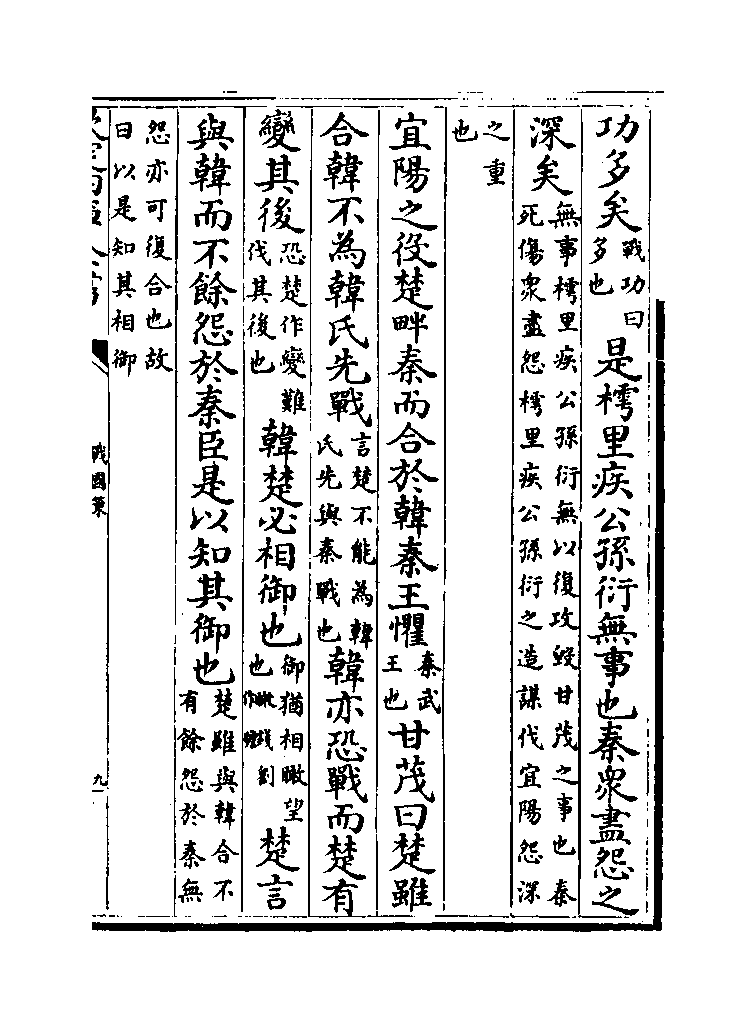 功多矣戰功曰多也是樗里疾公孫衍無事也秦衆盡怨之
深矣無事樗里疾公孫衍無以復攻毀甘茂之事也秦死傷衆盡怨樗里疾公孫衍之造謀伐宜陽怨深
之重也
宜陽之役楚畔秦而合於韓秦王懼秦武王也甘茂曰楚雖
合韓不為韓氏先戰言楚不能為韓氏先與秦戰也韓亦恐戰而楚有
變其後恐楚作變難伐其後也韓楚必相御也御猶相瞰望也瞰錢劉作楚言
與韓而不餘怨於秦臣是以知其御也楚雖與韓合不有餘怨於秦無
怨亦可復合也故曰以是知其相御
戰國策
九